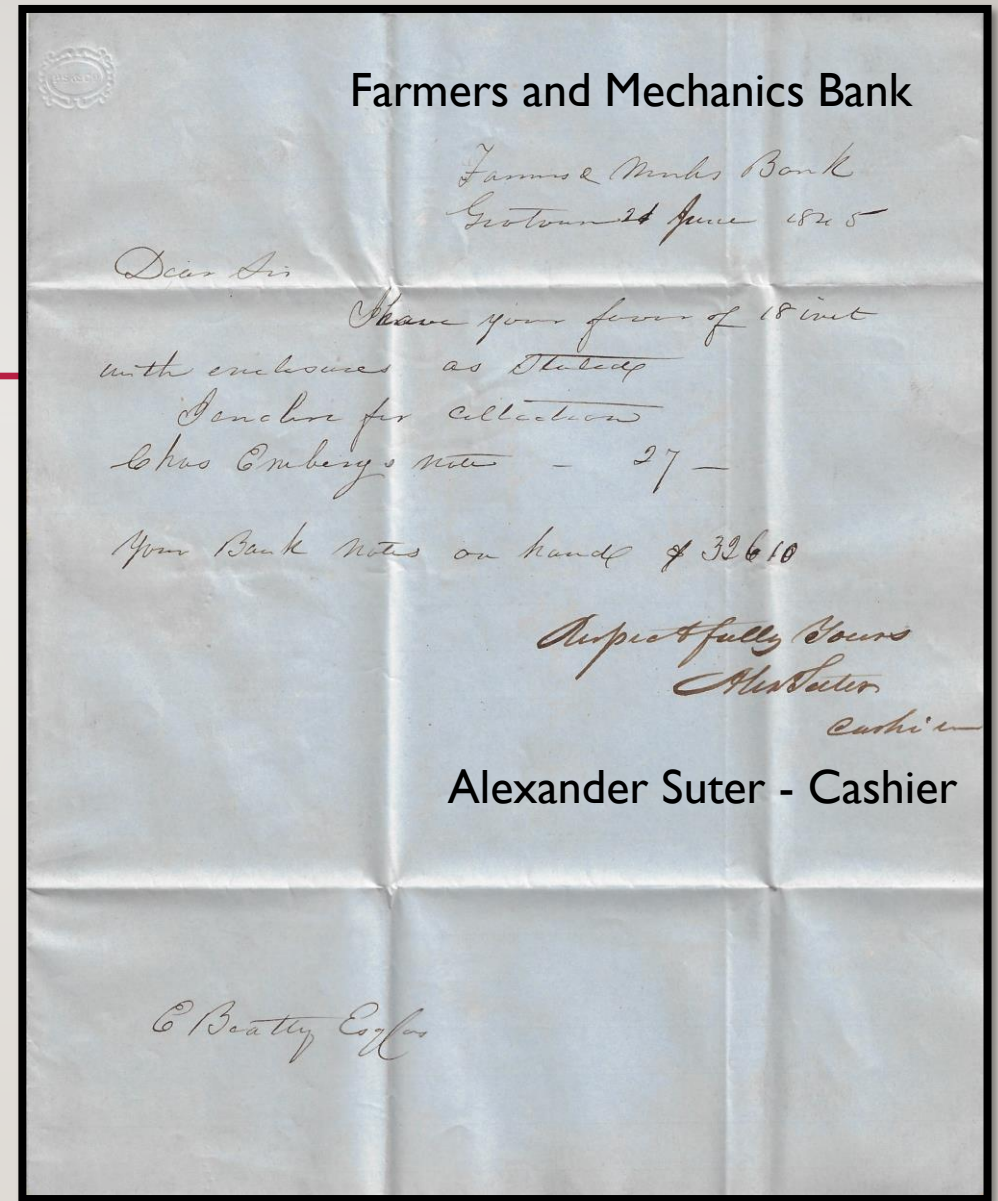 Farmers and Mechanics Bank
Farmers & Mechs Bank
Geotown 21 June 1845
Dear Sir
I have your favor of 18 inst
with enclosures as Stated
I enclose for collection
Chas Embery's note - 27 -
Your Bank notes on hand $ 32610
Respectfully Yours
Alex Suter
Cashier
Alexander Suter - Cashier
E Beatty Esq Cas